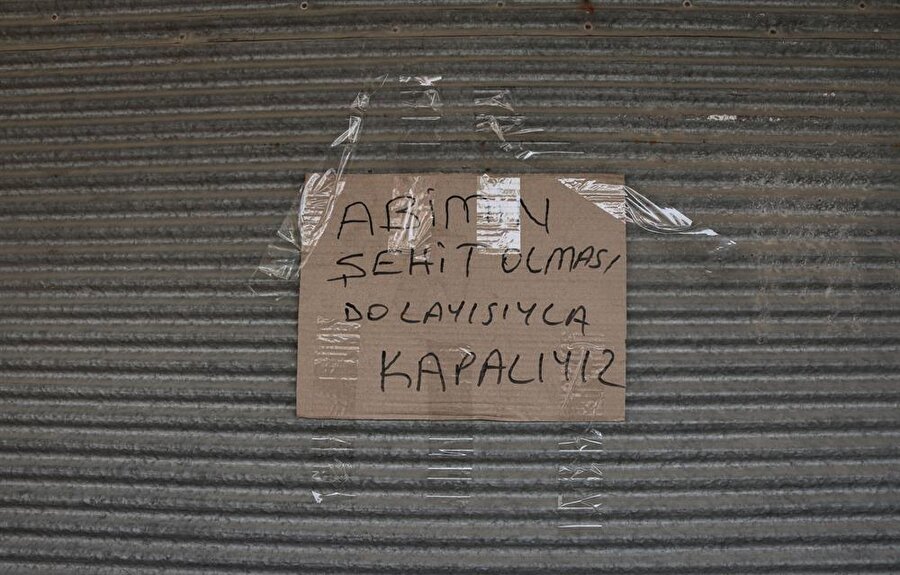 ABİMİN
ŞEHİT OLMASI
DOLAYISIYLA
KAPALIYIZ